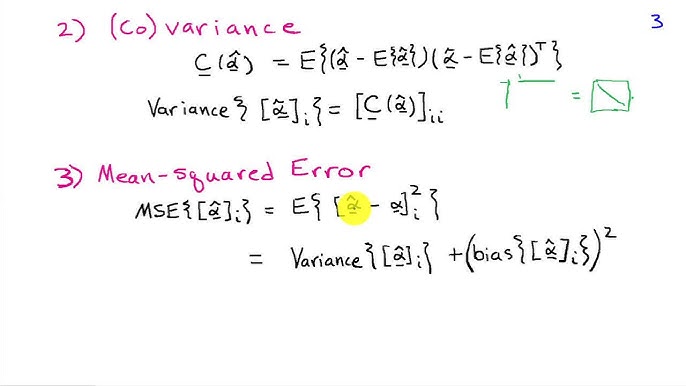 3
2) (Co)variance
C(α̂) = E{(α̂ - E{α̂})(α̂ - E{α̂})ᵀ}
Variance{[α̂]ᵢ} = [C(α̂)]ᵢᵢ
=
3) Mean-squared Error
MSE{[α̂]ᵢ} = E{[α̂ - α]ᵢ²}
= Variance{[α̂]ᵢ} + (bias{[α̂]ᵢ})²